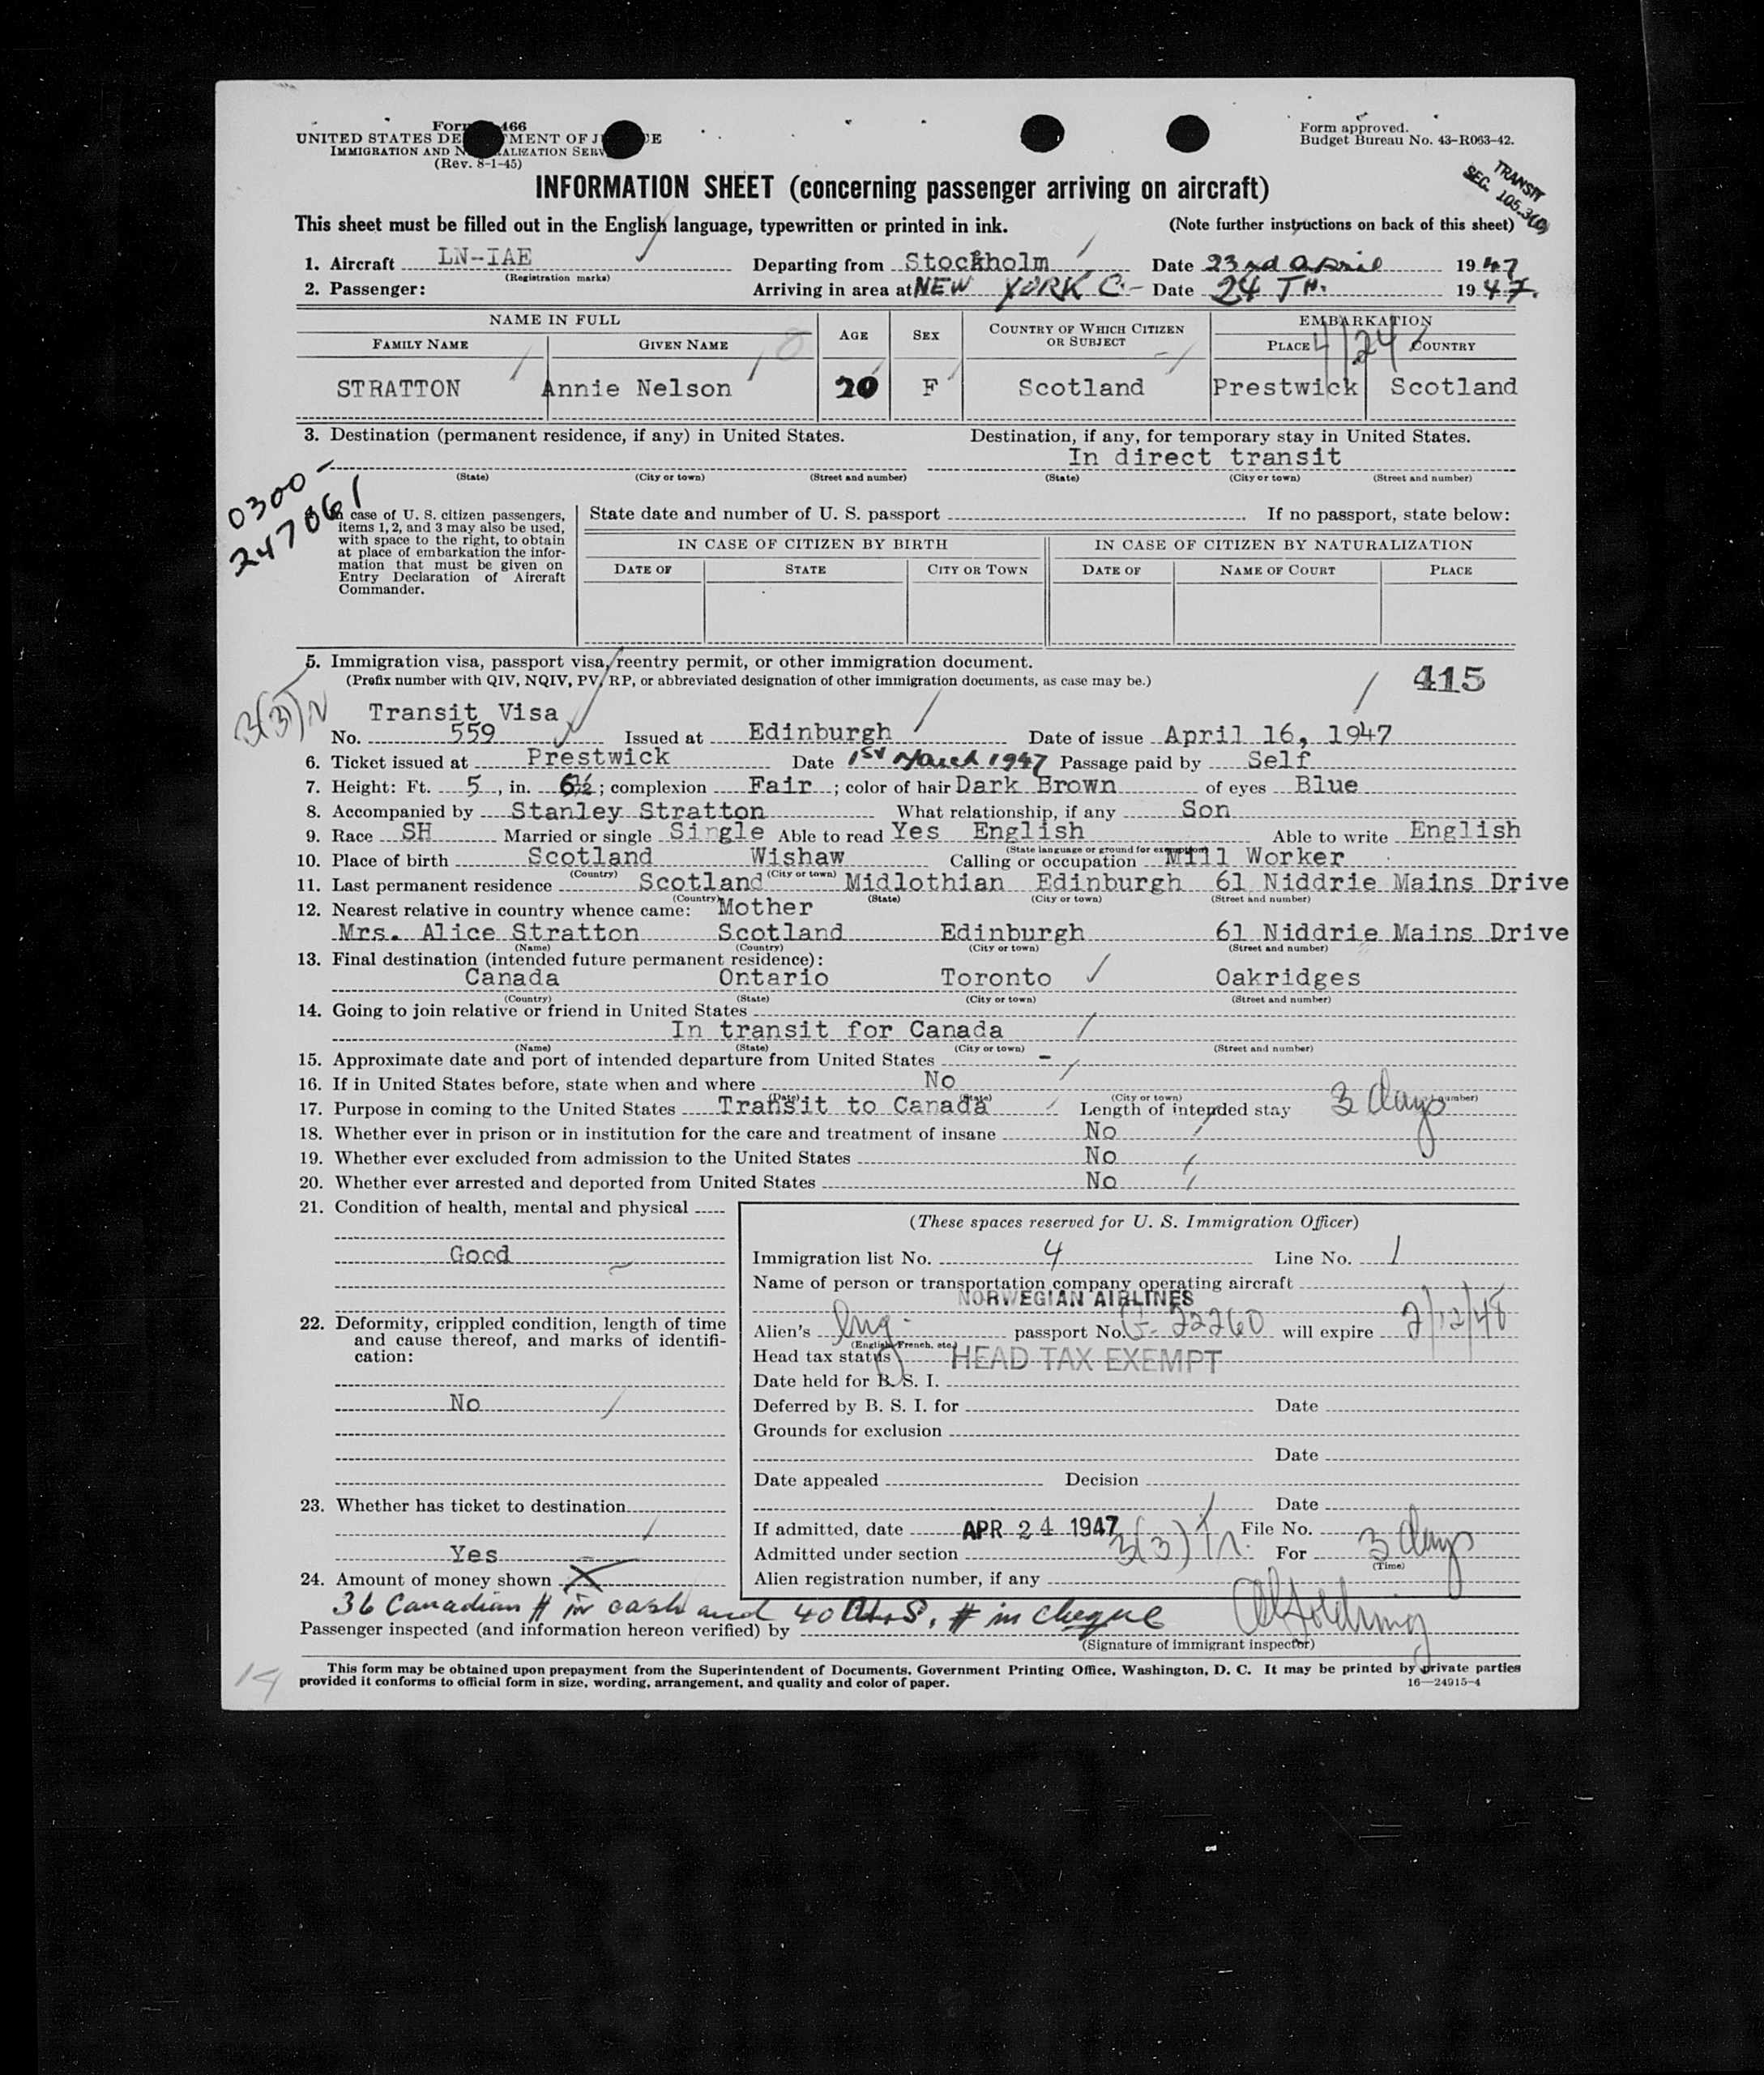 UNITED STATES DE MENT OF J E
IMMIGRATION AND N ALIZATION SERV
(Rev. 8-1-45)
Form approved.
Budget Bureau No. 43-R063-42.
TRANSIT
SEC. 105.3(b)
INFORMATION SHEET (concerning passenger arriving on aircraft)
This sheet must be filled out in the English language, typewritten or printed in ink. (Note further instructions on back of this sheet)
1. Aircraft LN-IAE Departing from Stockholm Date 23rd April 1947
(Registration marks)
2. Passenger: Arriving in area at NEW YORK C. Date 24 TH. 1947.
NAME IN FULL AGE SEX COUNTRY OF WHICH CITIZEN OR SUBJECT EMBARKATION
FAMILY NAME GIVEN NAME 8 PLACE 4/24 COUNTRY
STRATTON Annie Nelson 20 F Scotland Prestwick Scotland
3. Destination (permanent residence, if any) in United States. Destination, if any, for temporary stay in United States.
In direct transit
(State) (City or town) (Street and number) (State) (City or town) (Street and number)
0300-
247061
In case of U. S. citizen passengers,
items 1, 2, and 3 may also be used,
with space to the right, to obtain
at place of embarkation the infor-
mation that must be given on
Entry Declaration of Aircraft
Commander.
State date and number of U. S. passport If no passport, state below:
IN CASE OF CITIZEN BY BIRTH IN CASE OF CITIZEN BY NATURALIZATION
DATE OF STATE CITY OR TOWN DATE OF NAME OF COURT PLACE
5. Immigration visa, passport visa, reentry permit, or other immigration document.
(Prefix number with QIV, NQIV, PV, RP, or abbreviated designation of other immigration documents, as case may be.)
415
3(3)
Transit Visa
No. 559 Issued at Edinburgh Date of issue April 16, 1947
6. Ticket issued at Prestwick Date 1st March 1947 Passage paid by Self
7. Height: Ft. 5, in. 6½; complexion Fair; color of hair Dark Brown of eyes Blue
8. Accompanied by Stanley Stratton What relationship, if any Son
9. Race SH Married or single Single Able to read Yes English Able to write English
(State language or ground for exemption)
10. Place of birth Scotland Wishaw Calling or occupation Mill Worker
(Country) (City or town)
11. Last permanent residence Scotland Midlothian Edinburgh 61 Niddrie Mains Drive
(Country) (State) (City or town) (Street and number)
12. Nearest relative in country whence came: Mother
Mrs. Alice Stratton Scotland Edinburgh 61 Niddrie Mains Drive
(Name) (Country) (City or town) (Street and number)
13. Final destination (intended future permanent residence):
Canada Ontario Toronto Oakridges
(Country) (State) (City or town) (Street and number)
14. Going to join relative or friend in United States
In transit for Canada
(Name) (State) (City or town) (Street and number)
15. Approximate date and port of intended departure from United States -
16. If in United States before, state when and where No
(Date) (State) (City or town) number)
17. Purpose in coming to the United States Transit to Canada Length of intended stay 3 days
18. Whether ever in prison or in institution for the care and treatment of insane No
19. Whether ever excluded from admission to the United States No
20. Whether ever arrested and deported from United States No
21. Condition of health, mental and physical
Good
22. Deformity, crippled condition, length of time
and cause thereof, and marks of identifi-
cation:
No
23. Whether has ticket to destination
Yes
24. Amount of money shown X
(These spaces reserved for U. S. Immigration Officer)
Immigration list No. 4 Line No. 1
Name of person or transportation company operating aircraft
NORWEGIAN AIRLINES
Alien's Eng. passport No. 22260 will expire 2/12/48
(English, French, etc.)
Head tax status HEAD TAX EXEMPT
Date held for B. S. I.
Deferred by B. S. I. for Date
Grounds for exclusion
Date
Date appealed Decision
Date
If admitted, date APR 24 1947 File No.
Admitted under section 3(3) For 3 days
(Time)
Alien registration number, if any
36 Canadian $ in cash and 40 U.S. $ in cheque
Passenger inspected (and information hereon verified) by
(Signature of immigrant inspector)
This form may be obtained upon prepayment from the Superintendent of Documents, Government Printing Office, Washington, D. C. It may be printed by private parties
provided it conforms to official form in size, wording, arrangement, and quality and color of paper. 16—24915-4